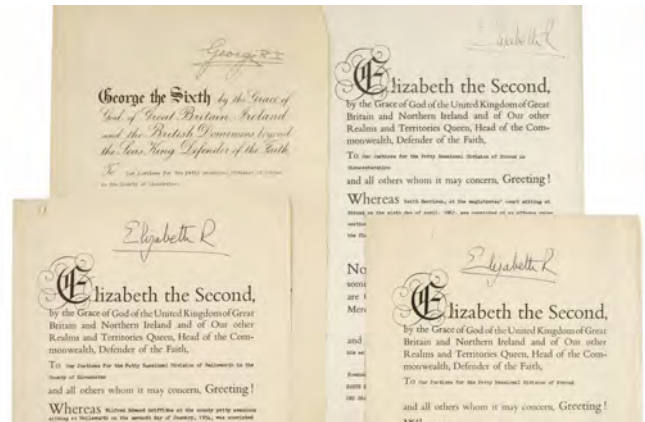 George R I
George the Sixth by the Grace of
God of Great Britain, Ireland
and the British Dominions beyond
the Seas King, Defender of the Faith
To Our Justices for the Petty Sessional Division of
in the County of Gloucester.
Elizabeth R
Elizabeth the Second,
by the Grace of God of the United Kingdom of Great
Britain and Northern Ireland and of Our other
Realms and Territories Queen, Head of the Com-
monwealth, Defender of the Faith,
To Our Justices for the Petty Sessional Division of Stroud in
Gloucestershire
and all others whom it may concern, Greeting!
Whereas Keith Harrison, at the magistrates' court sitting at
Stroud on the sixth day of April, 1967, was convicted of an offence under
section
the
No
some
are
Merc
and
Elizabeth R
Elizabeth the Second,
by the Grace of God of the United Kingdom of Great
Britain and Northern Ireland and of Our other
Realms and Territories Queen, Head of the Com-
monwealth, Defender of the Faith,
To Our Justices for the Petty Sessional Division of Nailsworth in the
County of Gloucester
and all others whom it may concern, Greeting!
Whereas Wilfred Edward Griffiths at the county petty sessions
sitting at Nailsworth on the seventh day of January, 1954, was convicted
Elizabeth R
Elizabeth the Second,
by the Grace of God of the United Kingdom of Great
Britain and Northern Ireland and of Our other
Realms and Territories Queen, Head of the Com-
monwealth, Defender of the Faith,
To Our Justices for the Petty Sessional Division of Stroud
and all others whom it may concern, Greeting!